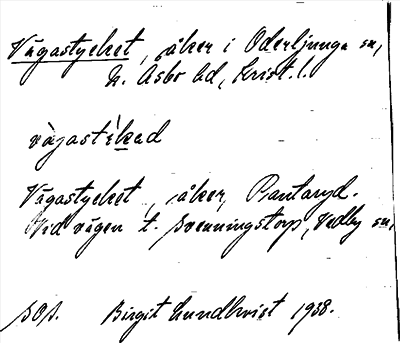 Vägastycket, åker i Oderljunga sn,
N. Åsbo hd, Krist. l.
Vägastycket, åker, Bantaryd.
Vid vägen t. Svenningstorp, Vedby sn,
Birgit Lundkvist 1938.